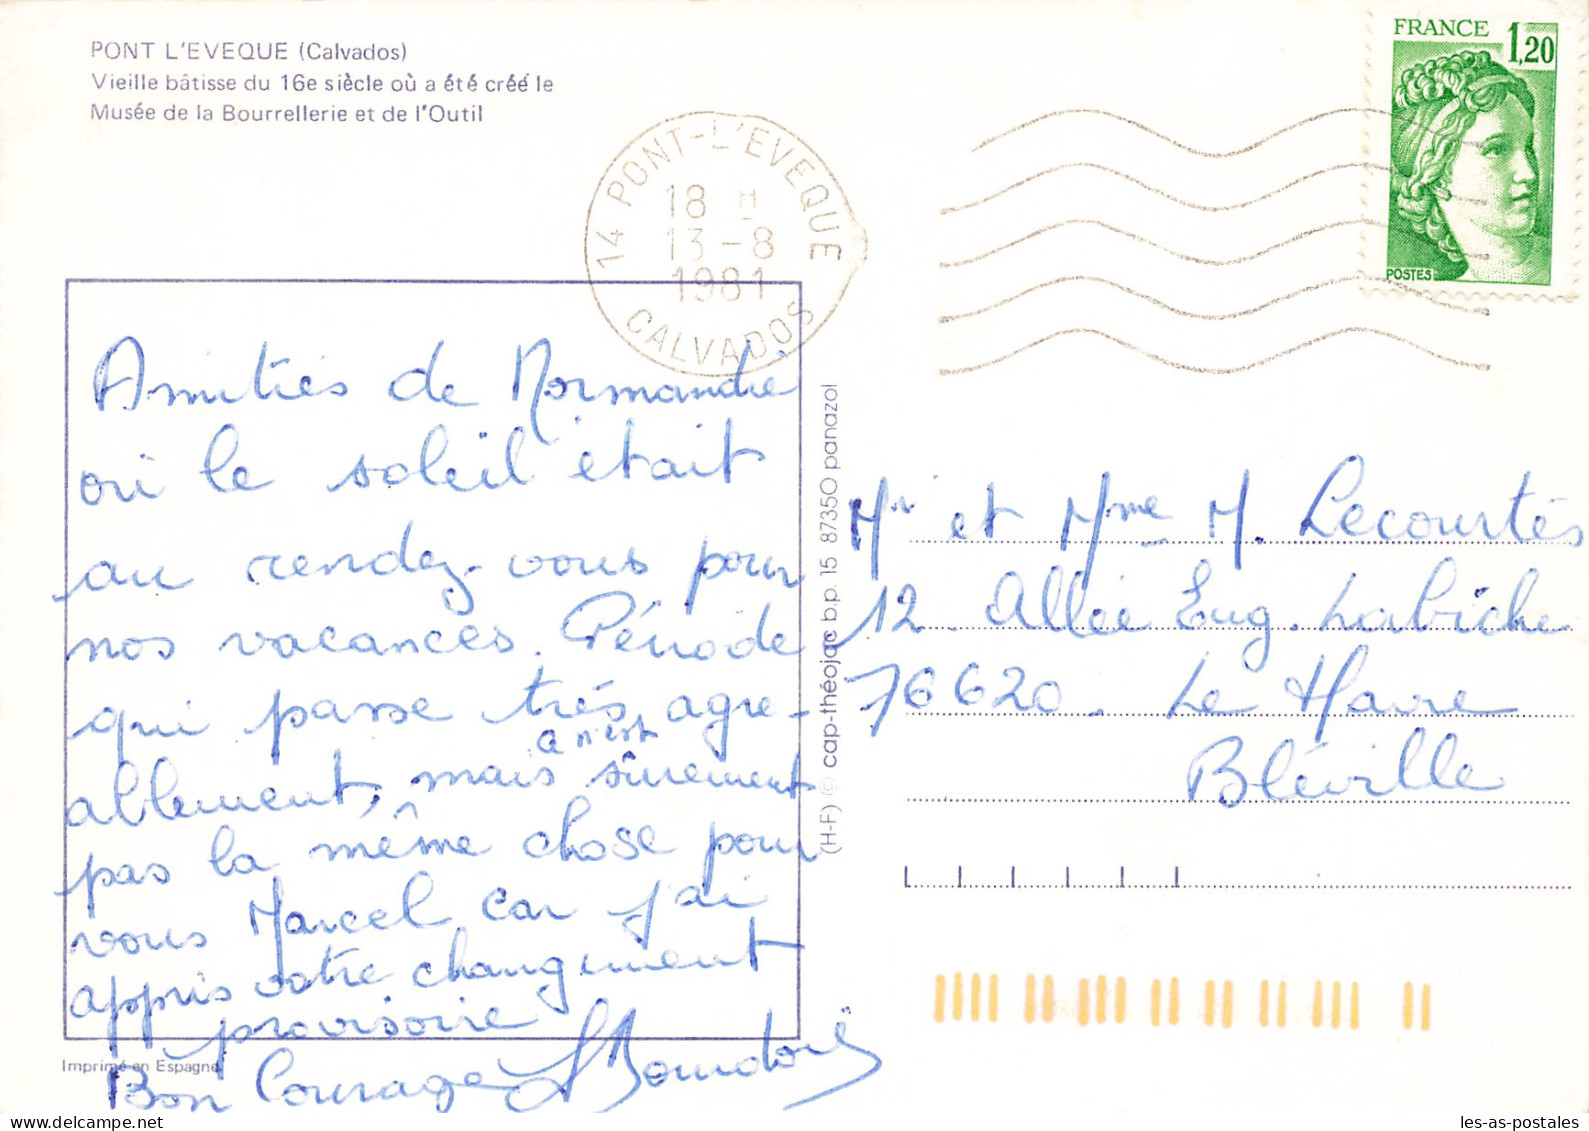 PONT L'EVEQUE (Calvados)
Vieille bâtisse du 16e siècle où a été créé le
Musée de la Bourrellerie et de l'Outil
14 PONT-L'EVEQUE
18 H
13-8
1981
CALVADOS
FRANCE 1,20
POSTES
Amitiés de Normandie
où le soleil était
au rendez-vous pour
nos vacances. Période
qui passe très agré-
ablement, mais sûrement
ce n'est
pas la même chose pour
vous Marcel car j'ai
appris votre changement
provisoire
Bon Courage
Imprimé en Espagne
(H-F) © cap-théojac b.p. 15 87350 panazol
Mr et Mme M. Lecourtés
12. Allée Eug. Labiche
76620. Le Havre
Bléville
les-as-postales
delcampe.net